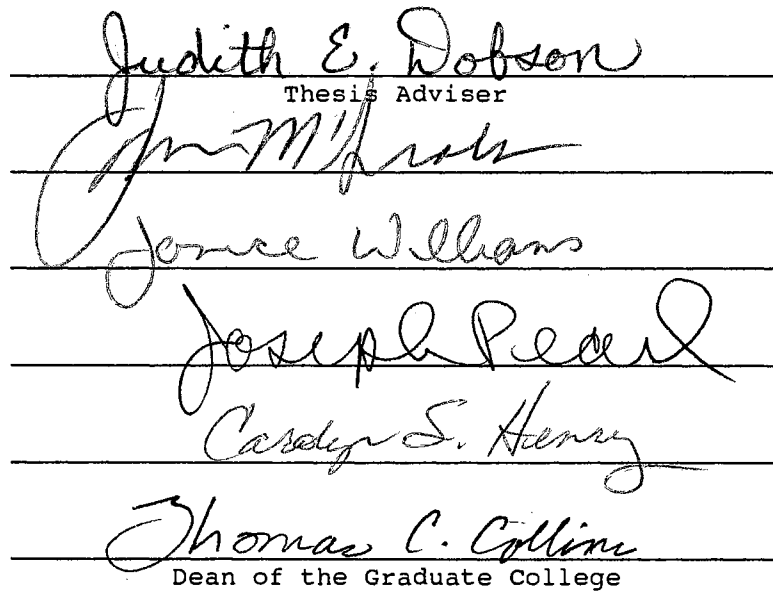 Judith E. Dobson
Thesis Adviser
Janice Williams
Joseph Pearl
Carolyn S. Henry
Thomas C. Collins
Dean of the Graduate College